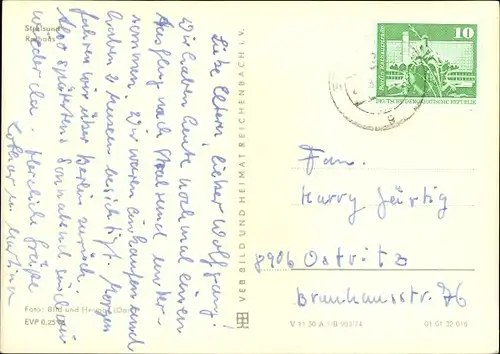 Stralsund
Rathaus
Liebe Eltern, lieber Wolfgang!
Wir haben heute noch mal einen
Ausflug nach Stralsund unter-
nommen. Wir waren einkaufen und
haben 2 Museen besichtigt. Morgen
fahren wir über Berlin zurück.
Also spätestens Sonnabend sind wir
wieder da. Herzliche Grüße
Lothar u. Martina
Foto: Bild und Heimat
EVP 0,25
VEB BILD UND HEIMAT REICHENBACH I. V.
10
DEUTSCHE DEMOKRATISCHE REPUBLIK
Fam.
Harry Härtig
8906 Ostritz
Brauhausstr. 76
01 01 32 016